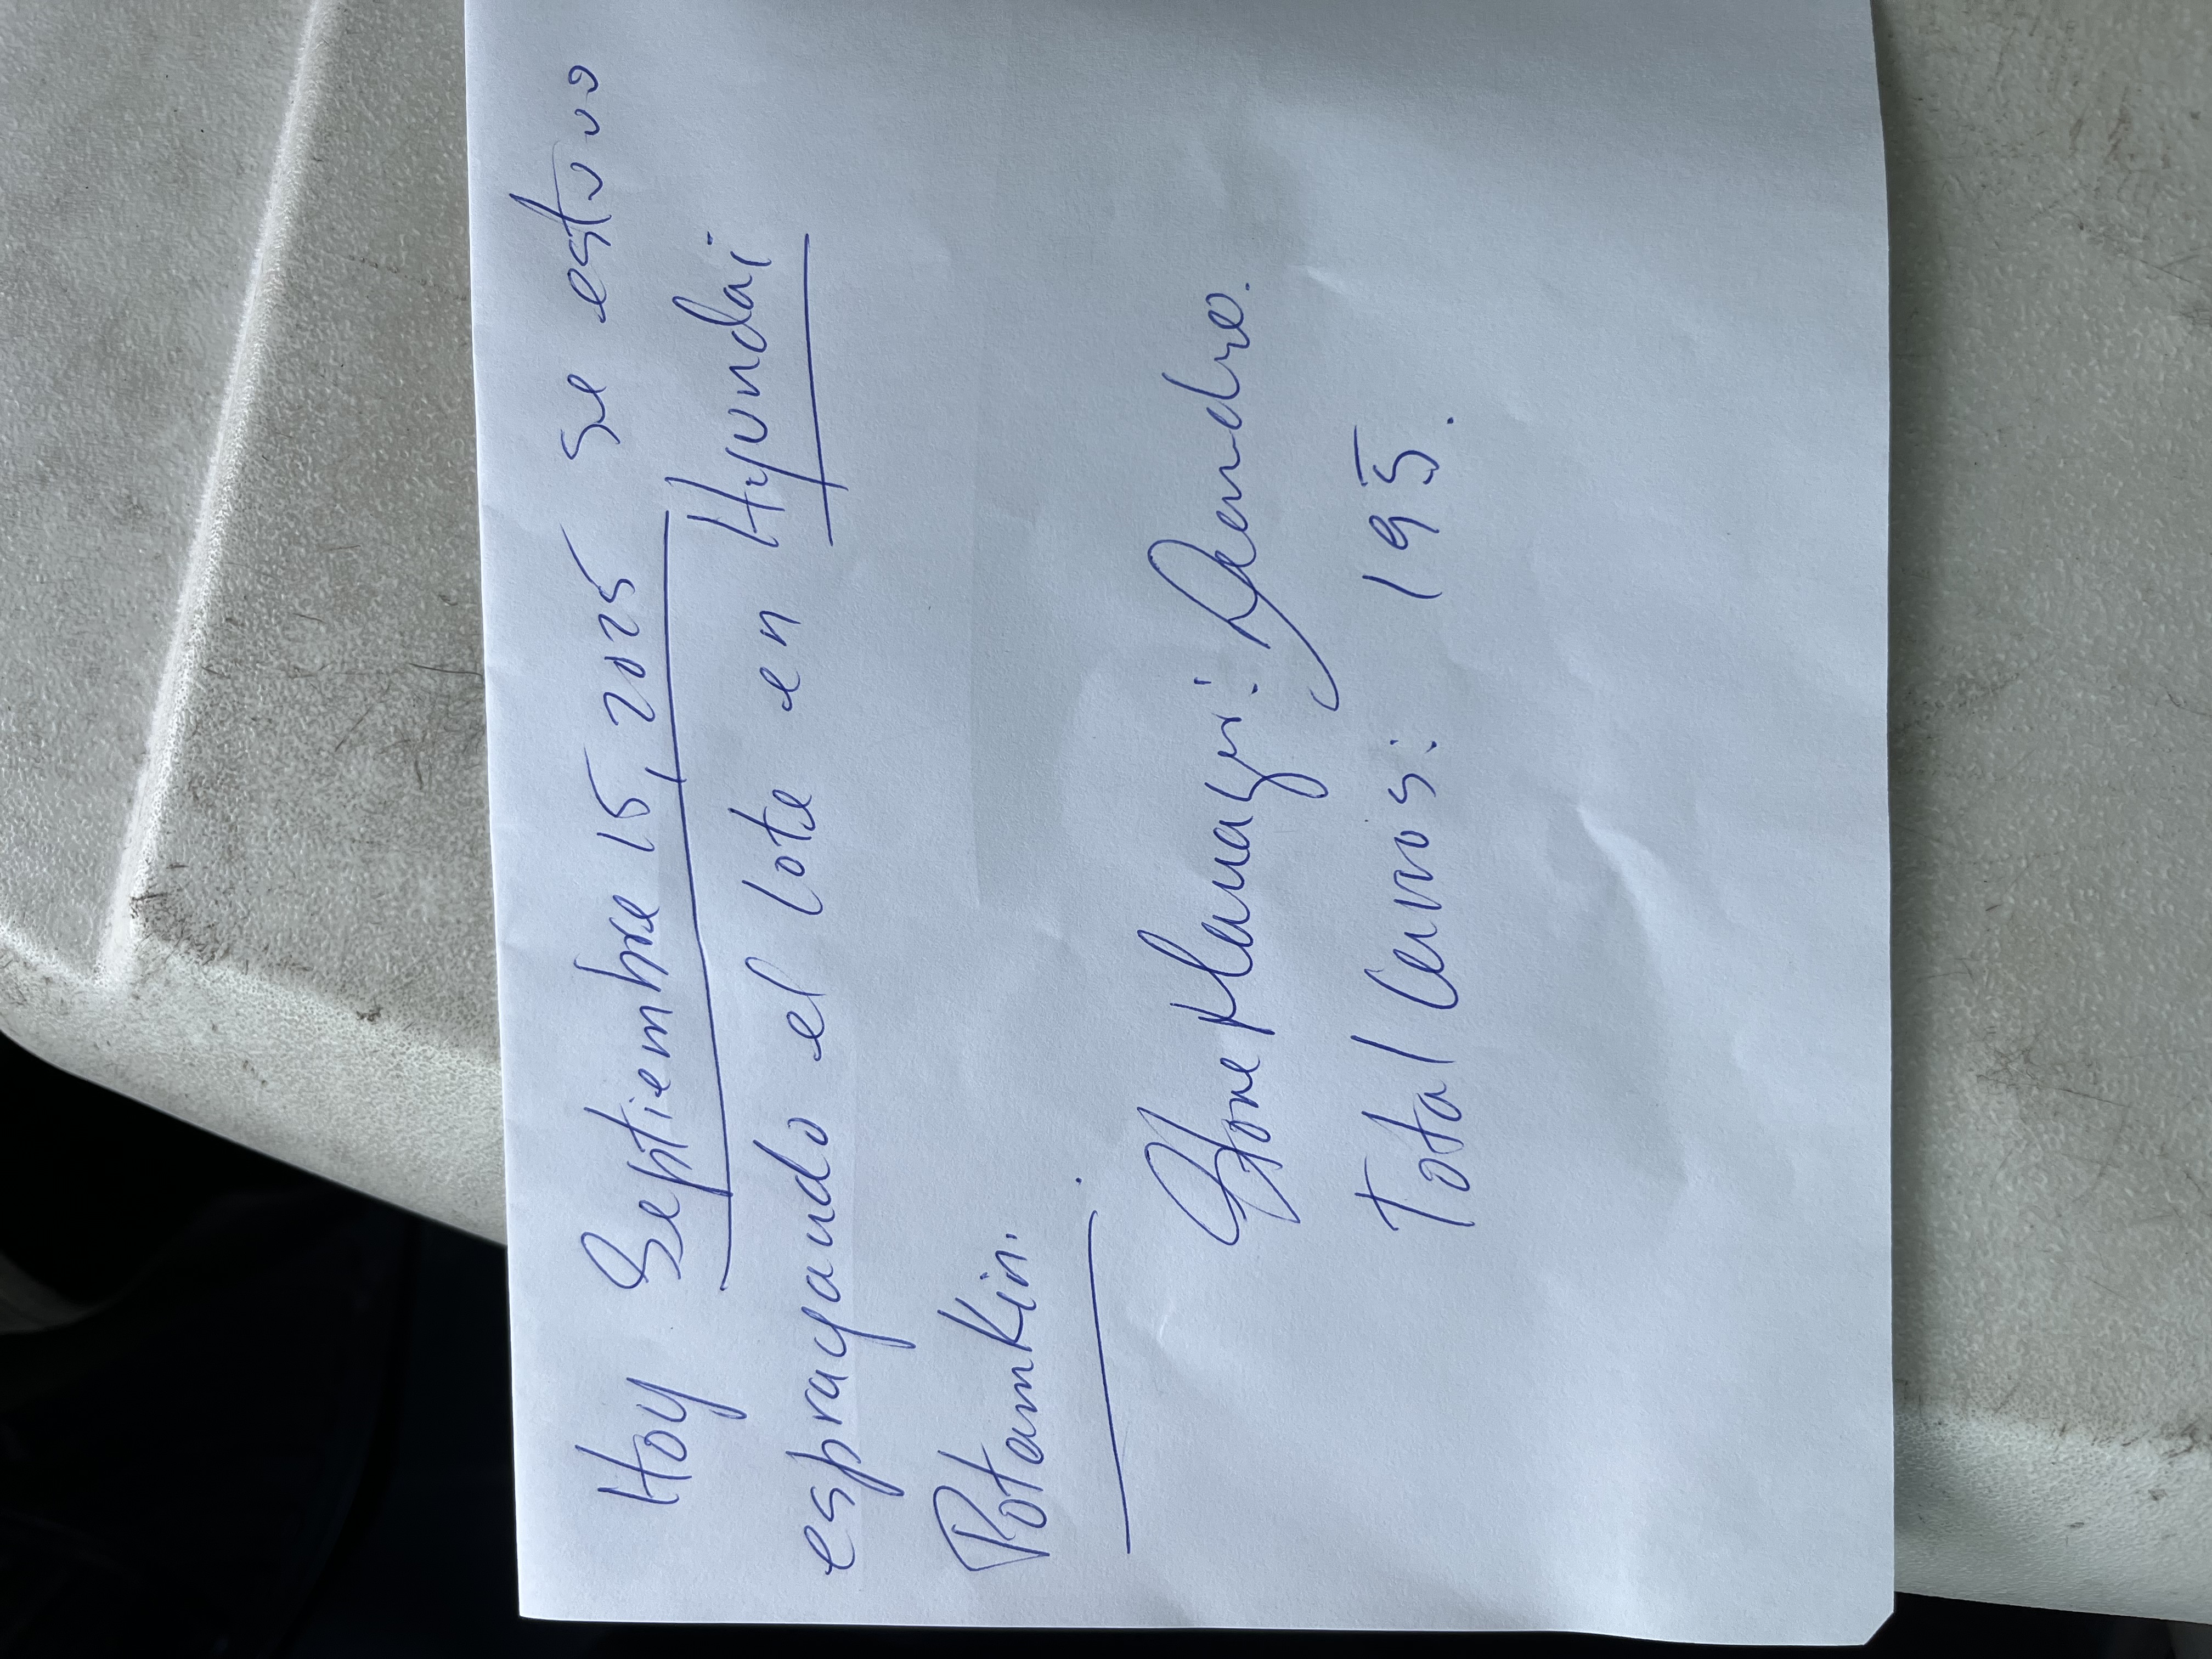 Hoy Septiembre 15, 2025 se estuvo
esprayando el lote en Hyundai
Potamkin.
Store Manager: Leandro.
Total Carros: 195.